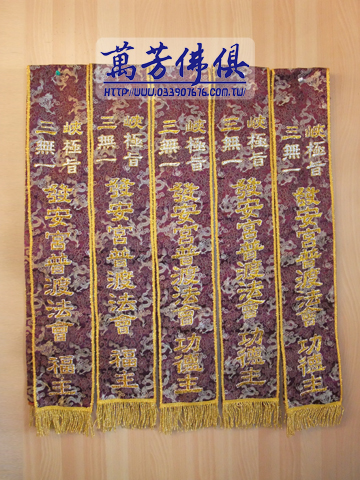 萬芳佛俱
HTTP://WWW.033907676.COM.TW/
三峽
無極
一旨
發安宮普渡法會 福主
三峽
無極
一旨
發安宮普渡法會 福主
三峽
無極
一旨
發安宮普渡法會 功德主
三峽
無極
一旨
發安宮普渡法會 功德主
三峽
無極
一旨
發安宮普渡法會 功德主